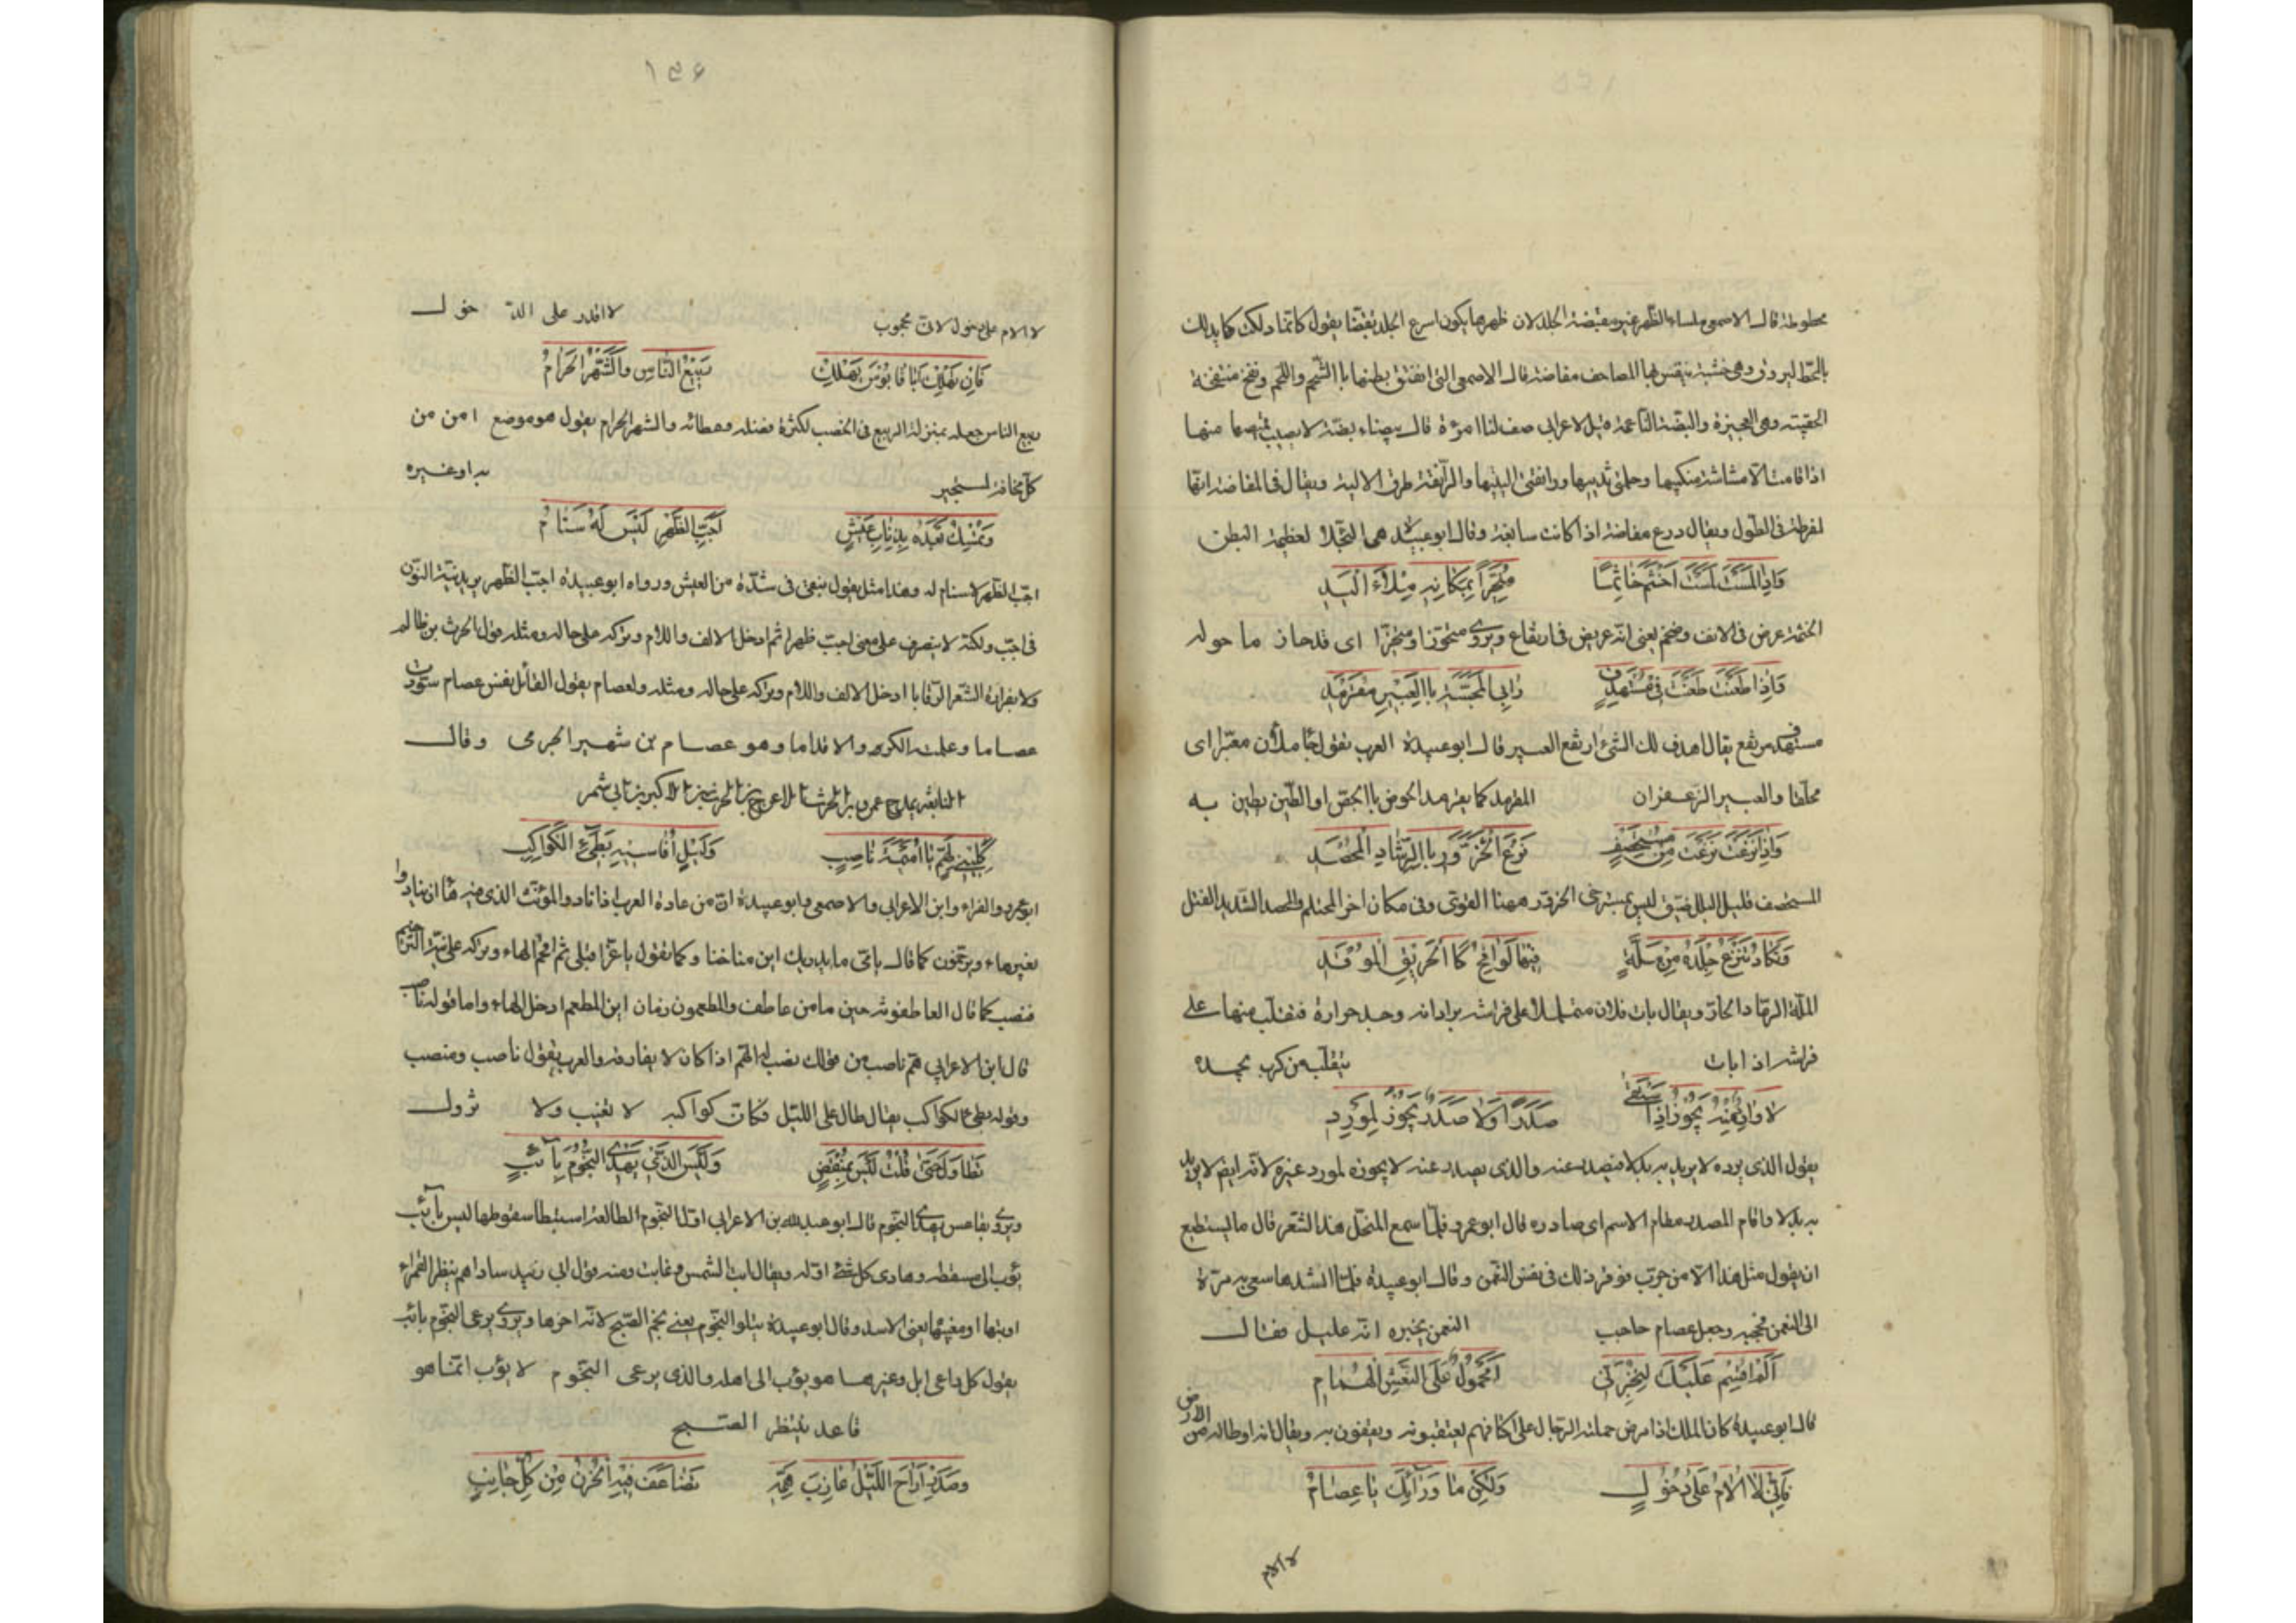 محطوطة قال الاصمعى ملساء الظهر غير مفيضة الجلد لان ظهرها يكون اسرع الجلد يقول كانما دلكت كما يدلك
بالمحط لبروزه وهى خشبة بها المصاحف مفاضة قال الاصمعى التى انفتق بطنها باالشحم واللحم ونفخ منتفخة
الحقيبة وهى العجيزة والبضة الناعمة قيل لاعرابى صف لنا امرءة قال بيضاء بضة لا يصيب قميصها منها
اذا قامت الا مشاشة منكبيها وحلمتى ثدييها ورانفتى اليتيها والرانفة طرف الالية ويقال فى المفاضة انها
لمفرطة فى الطول ويقال درع مفاضة اذا كانت سابغة وقال ابو عبيد هى العظيمة البطن
وَاِذا لَمَسْتَ لَمَسْتَ اَخْثَمَ جَاثِمًا مُتَحَيِّزاً بِمَكَانِهِ مِلْاءَ الْيَدِ
الخثمة عرض فى الانف وضخم يعنى انه عريض فى ارتفاع ويروى متحوزا ومنحزا اى قد حاز ما حوله
وَاِذا طَعَنْتَ طَعَنْتَ فى مُسْتَهْدِفٍ رَابِى الْمَجَسَّةِ بِاالْعَبِيْرِ مُقَرْمَدِ
مستهدف مرتفع يقال اهدف لك الشئ ارتفع العبير قال ابو عبيدة العرب تقول ملان اى
مخلقا والعبير الزعفران المقرمد كما يقرمد الحوض باالجص او الطين يطين به
وَاِذا نَزَعْتَ نَزَعْتَ مِنْ مُسْتَحْصِفٍ نَزْعَ الْحَزَوَّرِ بِاالرِّشَاءِ الْمُحْصَدِ
المستحصف قليل البلل ضيق ليس بمسترخى الحزور ههنا القوى وفى مكان اخر المحتلم والمحصد الشديد الفتل
وَتَكَادُ تَنْزِعُ جِلْدَهُ مِنْ مَلَّةٍ فِيْهَا لَوَافِحُ كَا الْحَرِيْقِ الْمُوْقَدِ
الملة الرماد الحار ويقال بات فلان متململا على فراشه يراد انه وجد حرارة فتقلب منها على
فراشه اذا بات يتقلب من كرب يجده
لا وَارِدٌ مِنْهُ يَجُوْزُ اِذَا اسْتَقٰى صَدَرًا وَلا صَدِرٌ يَجُوْزُ لِمَوْرِدِ
يقول الذى يرده لا يريد به بدلا فيصدر عنه والذى يصدر عنه لا يجوزه لمورد غيره لانه ايضا لا يريد
به بدلا واقام المصدر مقام الاسم اى صادره قال ابو عمرو فلما سمع المنخل هذا الشعر قال ما يستطيع
ان يقول مثل هذا الا من جرب فوقر ذلك فى نفس النعمن وقال ابو عبيدة فلما انشدها سعى به مرة
الى النعمن فحجبه وجعل عصام حاجب النعمن يخبره انه عليل فقال
اَلَمْ اُقْسِمْ عَلَيْكَ لِتُخْبِرَنِّى اَمَحْمُوْلٌ عَلَى النَّعْشِ الْهُمَامُ
قال ابو عبيدة كان الملك اذا مرض حملته الرجال على اكتافهم يعتقبونه ويقفون به ويقال انه اوطا له من الارض
فَاِنِّى لا اُلامُ عَلٰى دُخُوْلٍ وَلٰكِنْ مَا وَرَآئَكَ يَا عِصَامُ
لا الام
١٥٤
لا الام على دخول لانى محجوب لا اقدر على الدخول
فَاِنْ يَهْلِكْ اَبُا قَابُوْسَ يَهْلِكْ رَبِيْعُ النَّاسِ وَالشَّهْرُ الْحَرَامُ
ربيع الناس جعله بمنزلة الربيع فى الخصب لكثرة فضله وعطائه والشهر الحرام يقول هو موضع امن من
كل مخافة لمستجير به او غيره
وَنُمْسِكُ بَعْدَهُ بِذِنَابِ عَيْشٍ اَجَبِّ الظَّهْرِ لَيْسَ لَهُ سَنَامُ
اجب الظهر لا سنام له وهذا مثل يقول نبقى فى شدة من العيش ورواه ابو عبيدة اجب الظهر يريد نية النون
فى اجب ولكنه لا ينصرف على معنى اجب ظهرا ثم ادخل الالف واللام وتركه على حاله ومثله قول الحرث بن ظالم
ولا بفزارة الشعر الرقابا ادخل الالف واللام وتركه على حاله ومثله ولعصام يقول القائل نفس عصام سودت
عصاما وعلمته الكر والاقداما وهو عصام بن شهبر الجرمى وقال
النابغة يمدح عمرو بن الحرث الاعرج بن الحرث الاكبر بن ابى شمر
كِلِيْنِى لِهَمٍّ يَا اُمَيْمَةَ نَاصِبٍ وَلَيْلٍ اُقَاسِيْهِ بَطِيْءِ الْكَوَاكِبِ
ابو عمرو والفراء وابن الاعرابى والاصمعى وابو عبيدة ان من عادة العرب اذا نادوا المؤنث الذى فيه هاء ان ينادوا
بغير هاء ويرخمون كما قال يا مى ما يدريك اين مناخنا وكما يقول يا عز اقبلى ثم اقحم الهاء وتركه على نية الترخيم
فنصب كما قال العاطفونة حين ما من عاطف والمطعمون زمان اين المطعم ادخل الهاء واما قوله ناصب
قال ابن الاعرابى هم ناصب من قولك نصب له الهم اذا كان لا يفارقه والعرب يقول ناصب ومنصب
وقوله بطئ الكواكب يقال طال على الليل فكان كواكبه لا تغيب ولا تزول
تَطَاوَلَ حَتّٰى قُلْتُ لَيْسَ بِمُنْقَضٍ وَلَيْسَ الَّذِىْ يَهْدِى النُّجُوْمَ بِآئِبٍ
ويروى تقاعس يهدى النجوم قال ابو عبد الله بن الاعرابى اول النجوم الطالعة استبطا سقوطها ليس بآئب
يؤب الى مسقطه وهادى كل شئ اوله ويقال ابت الشمس وغابت ومنه قول ابى زبيد
اوبتها او مغيبها يعنى الاسد وقال ابو عبيدة يتلو النجوم يعنى نجم الصبح لانه اخرها ويروى يرعى النجوم بائب
يقول كل راعى ابل وغيرها هو يؤب الى اهله والذى يرعى النجوم لا يؤب انما هو
قاعد ينتظر الصبح
وَصَدْرٍ اَرَاحَ اللَّيْلُ عَازِبَ هَمِّهِ تَضَاعَفَ فِيْهِ الْحُزْنُ مِنْ كُلِّ جَانِبٍ